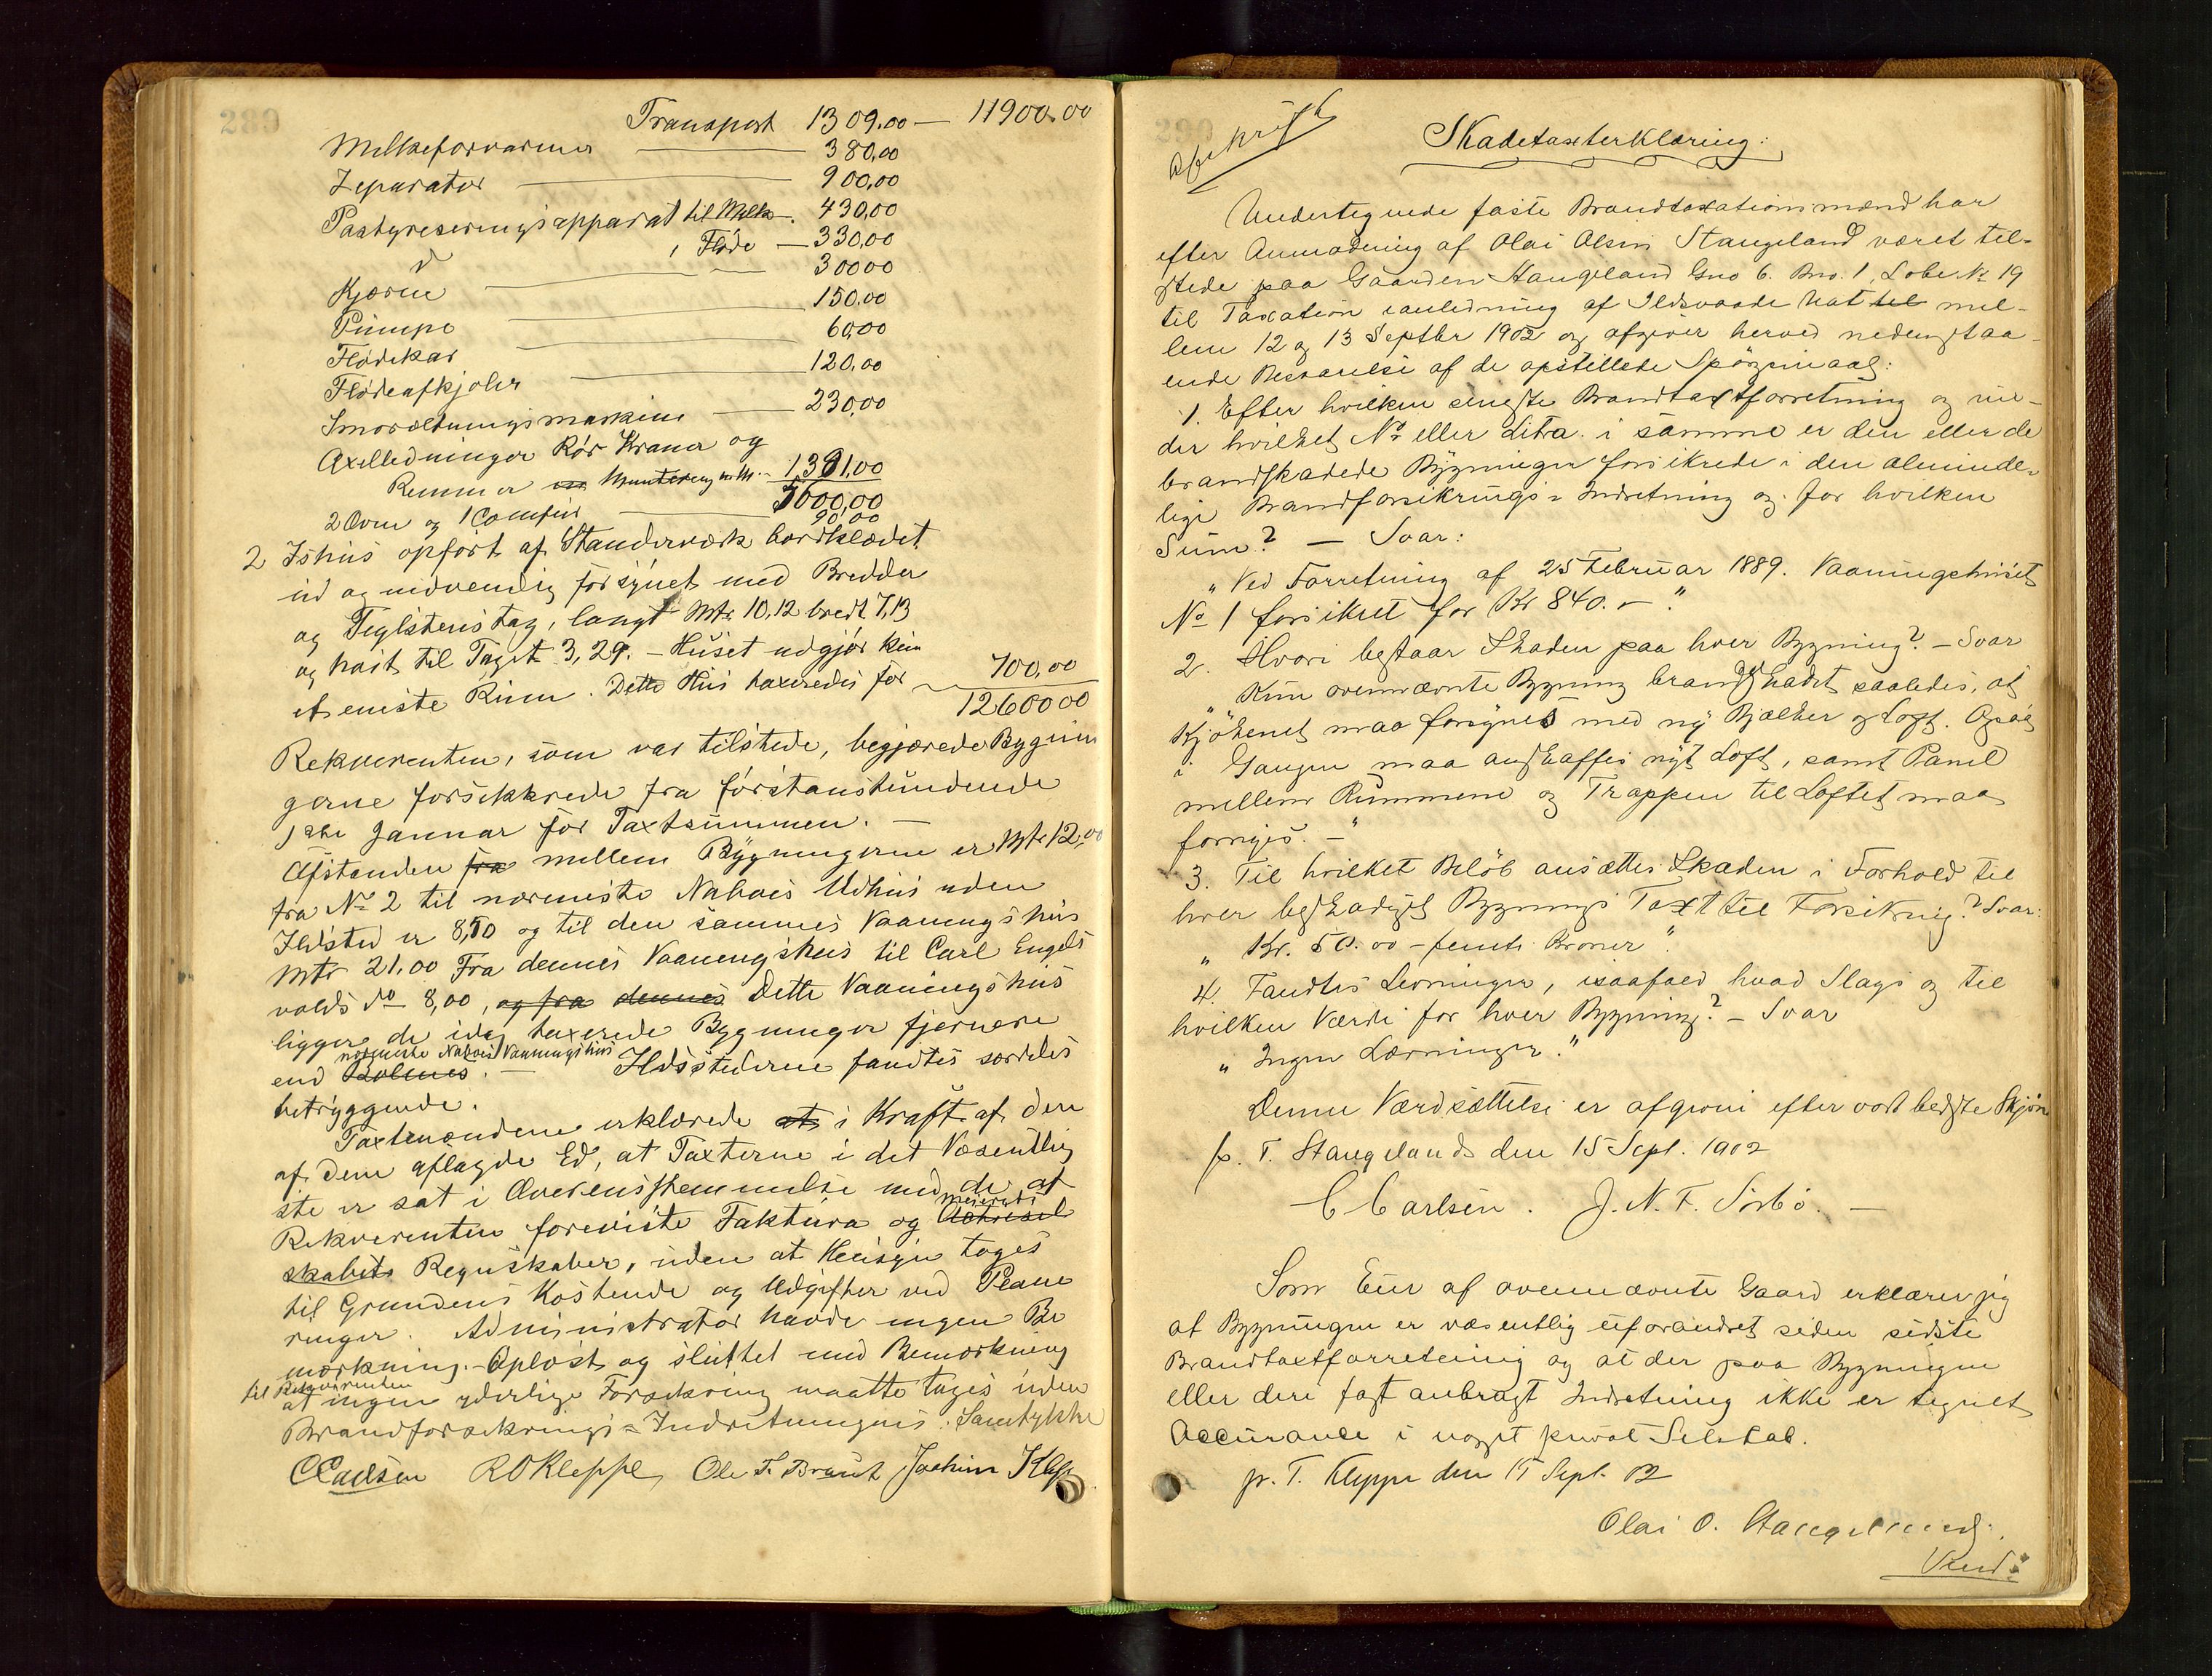 289
Transport 1309.00 — 11900.00
Melkeforvarmer 380,00
Zeparator 900,00
Pastyreseringsapparat til Melk 430,00
" Fløde 330,00
Kjærne 300,00
Pumpe 150,00
Flødekar 60,00
Flødeafkjøler 120,00
Smøræltningsmaskine 230,00
Axelledninger Rør Kraner og
Remmer Muntering m.m. 1,391,00
5600,00
2 Ovne og 1 Comfur 90,00
2 Ishus opført af Standerværk bordklædet
ud og indvendig forsynet med Bredder
og Teglstenstag, langt Mtr 10,12 bredt 7,13
og høit til Taget 3,29. – Huset udgjør kun
et eneste Rum. Dette Hus taxeredes for 700,00
12600 00
Rekvirenten, som var tilstede, begjærede Bygnin
gerne forsikkrede fra førstanstundende
1ste Januar for Taxtsummen. —
Afstanden fra mellem Bygningerne er Mtr 12,00
fra No 2 til nærmeste Nabois Udhus uden
Ildsted er 8,50 og til den sammes Vaaningshus
Mtr 21.00 Fra dennes Vaaningshus til Carl Engels
volds do 8,00, og fra dennes Dette Vaaningshus
ligger de idag taxerede Bygninger fjernere
end nærmeste Nabois Vaaningshus. — Ildsstederne fandtes særdeles
betryggende.
Taxtmændene erklærede at i Kraft af den
af dem aflagde Ed, at Taxterne i det Væsentlig
ste er sat i Overensstemmelse med de af
Rekvirenten foreviste Faktura og Meieriets
skabets Regnskaber, uden at Hensyn toges
til Grundens Kostende og Udgifter ved Plane
ringer. Administrator havde ingen Be
mærkning. – Oplæst og sluttet med Bemærkning
til Rekvirenten
at ingen yderlige Forsikring maatte tages uden
Brandforsikrings=Indretningens Samtykke
CCarlsen ROKleppe Ole T. Braut Jachim Klep
290
Afskrift
Skadetaxterklæring:
Undertegnede faste Brandtaxationsmænd har
efter Anmodning af Olai Olsen Stangeland været til-
stede paa Gaarden Stangeland Gno 6. Bno. 1, Løbe No 19
til Taxation ianledning af Ildsvaade Nat til mel-
lem 12 og 13 Septbr 1902 og afgiver herved nedenstaa-
ende Besvarelse af de opstillede Spørgsmaal:
1. Efter hvilken seneste Brandtaxtforretning og un-
der hvilket No eller Litra i samme er den eller de
brandskadede Bygninger forsikrede i den alminde-
lige Brandforsikrings= Indretning og for hvilken
Sum? — Svar:
"Ved Forretning af 25 Februar 1889. Vaaningshuset
No 1 forsikret for Kr 840.–"
2. Hvori bestaar Skaden paa hver Bygning? – Svar
"Kun ovennævnte Bygning brandskadet saaledes, at
Kjøkenet maa forsynes med ny Bjælker og Loft. Ogsaa
i Gangen maa anskaffes nyt Loft, samt Panel
mellem Rummene og Trappen til Loftet maa
fornyes. –"
3. Til hvilket Beløb ansættes Skaden i Forhold til
hver beskadiget Bygnings Taxt til Forsikring? Svar:
"Kr. 50.00 – femti Kroner".
4. Fandtes Levninger, isaafald hvad Slags og til
hvilken Værdi for hver Bygning? – Svar
"Ingen Levninger."
Denne Værdsættelse er afgiven efter vort bedste Skjøn
p. T. Stangeland den 15 Sept. 1902
C Carlsen. J. N. F. Sørbø. —
Som Eier af ovennævnte Gaard erklærer jeg
at Bygningen er væsentlig uforandret siden sidste
Brandtaxtforretning og at der paa Bygningen
eller deri fast anbragt Indretning ikke er tegnet
Accurance i noget privat Selskab.
p. T. Kleppe den 15 Sept. 02
Olai O. Stangeland.